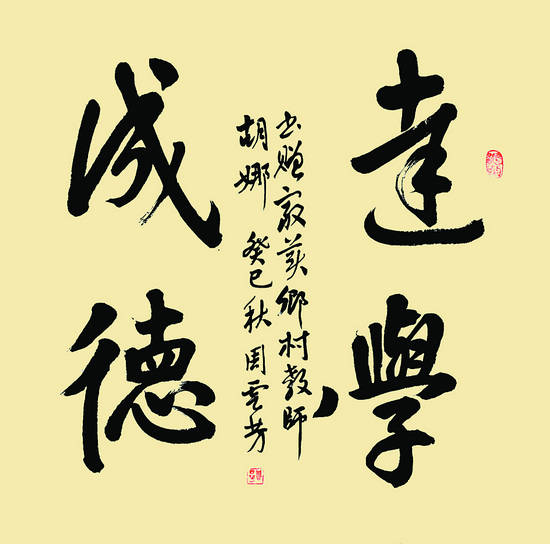 達學
成德
书赠最美鄉村教師
胡娜 癸巳秋 周雲芳